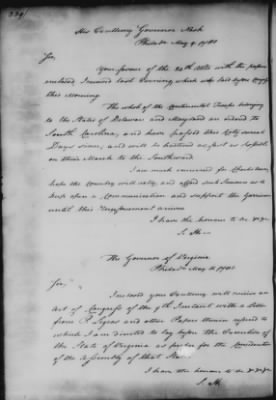 His Excellency Governor Nash
Philada May 9. 1780
Sir,
Your favour of the 24th Ulto with the papers
enclosed, I received last Evening, which was laid before Congress
this Morning.
The whole of the Continental Troops belonging
to the States of Delaware and Maryland are ordered to
South Carolina, and have passed this City several
Days since, and will be hastened as fast as possible
on their March to the Southward.
I am much concerned for Charlestown,
hope the Country will rally, and afford such Succours as to
keep open a Communication and support the Garrison
until this Reinforcement arrives
I have the honour to be &c
S. H.
The Governor of Virginia
Philada May 1780
Sir,
Inclosed your Excellency will receive an
Act of Congress of the 9th Instant with a Letter
from and other Papers therein referred to
which I am directed to lay before the Executive of
the State of Virginia as proper for the Consideration
of the Assembly of that State.
I have the honour to be &c
S. H.